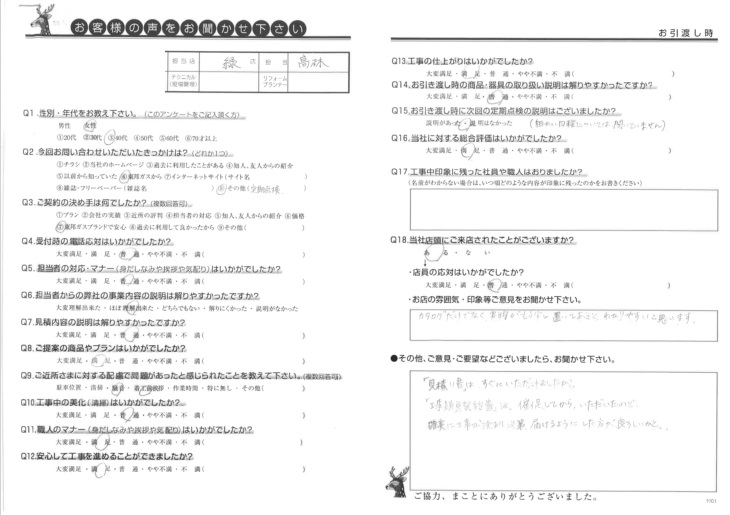 お客様の声をお聞かせ下さい
担当店 緑 店 担当 高林
テクニカル(現場管理) リフォームプランナー
Q1.性別・年代をお教え下さい。(このアンケートをご記入頂く方)
男性 女性
①20代 ②30代 ③40代 ④50代 ⑤60代 ⑥70才以上
Q2.今回お問い合わせいただいたきっかけは?(どれか1つ)
①チラシ ②当社のホームページ ③過去に利用したことがある ④知人、友人からの紹介
⑤以前から知っていた ⑥東邦ガスから ⑦インターネットサイト(サイト名 )
⑧雑誌・フリーペーパー(雑誌名 ) ⑨その他(定期点検)
Q3.ご契約の決め手は何でしたか?(複数回答可)
①プラン ②会社の実績 ③近所の評判 ④担当者の対応 ⑤知人、友人からの紹介 ⑥価格
⑦東邦ガスブランドで安心 ⑧過去に利用して良かったから ⑨その他( )
Q4.受付時の電話応対はいかがでしたか?
大変満足・満足・普通・やや不満・不満( )
Q5.担当者の対応・マナー(身だしなみや挨拶や気配り)はいかがでしたか?
大変満足・満足・普通・やや不満・不満( )
Q6.担当者からの弊社の事業内容の説明は解りやすかったですか?
大変理解出来た・ほぼ理解出来た・どちらでもない・解りにくかった・説明がなかった
Q7.見積内容の説明は解りやすかったですか?
大変満足・満足・普通・やや不満・不満( )
Q8.ご提案の商品やプランはいかがでしたか?
大変満足・満足・普通・やや不満・不満( )
Q9.ご近所さまに対する配慮で問題があったと感じられたことを教えて下さい。(複数回答可)
駐車位置・清掃・騒音・着工前挨拶・作業時間・特に無し・その他( )
Q10.工事中の美化(清掃)はいかがでしたか?
大変満足・満足・普通・やや不満・不満( )
Q11.職人のマナー(身だしなみや挨拶や気配り)はいかがでしたか?
大変満足・満足・普通・やや不満・不満( )
Q12.安心して工事を進めることができましたか?
大変満足・満足・普通・やや不満・不満( )
お引渡し時
Q13.工事の仕上がりはいかがでしたか?
大変満足・満足・普通・やや不満・不満( )
Q14.お引き渡し時の商品・器具の取り扱い説明は解りやすかったですか?
大変満足・満足・普通・やや不満・不満( )
Q15.お引き渡し時に次回の定期点検の説明はございましたか?
説明があった・説明はなかった (細かい日程については聞いていません)
Q16.当社に対する総合評価はいかがでしたか?
大変満足・満足・普通・やや不満・不満( )
Q17.工事中印象に残った社員や職人はおりましたか?
(名前がわからない場合は、いつ頃どのような内容が印象に残ったのかをお書きください)
Q18.当社店頭にご来店されたことがございますか?
ある・ない
・店員の応対はいかがでしたか?
大変満足・満足・普通・やや不満・不満( )
・お店の雰囲気・印象等ご意見をお聞かせ下さい。
カタログだけでなく 実物がもう少し 置いてあると わかりやすいと思います。
●その他、ご意見・ご要望などございましたら、お聞かせ下さい。
「見積り書は すぐにいただけましたが、
は、催促してから、いただいたので、
確実に工事が決まり次第 届けるようにした方が良ろしいかと。
ご協力、まことにありがとうございました。